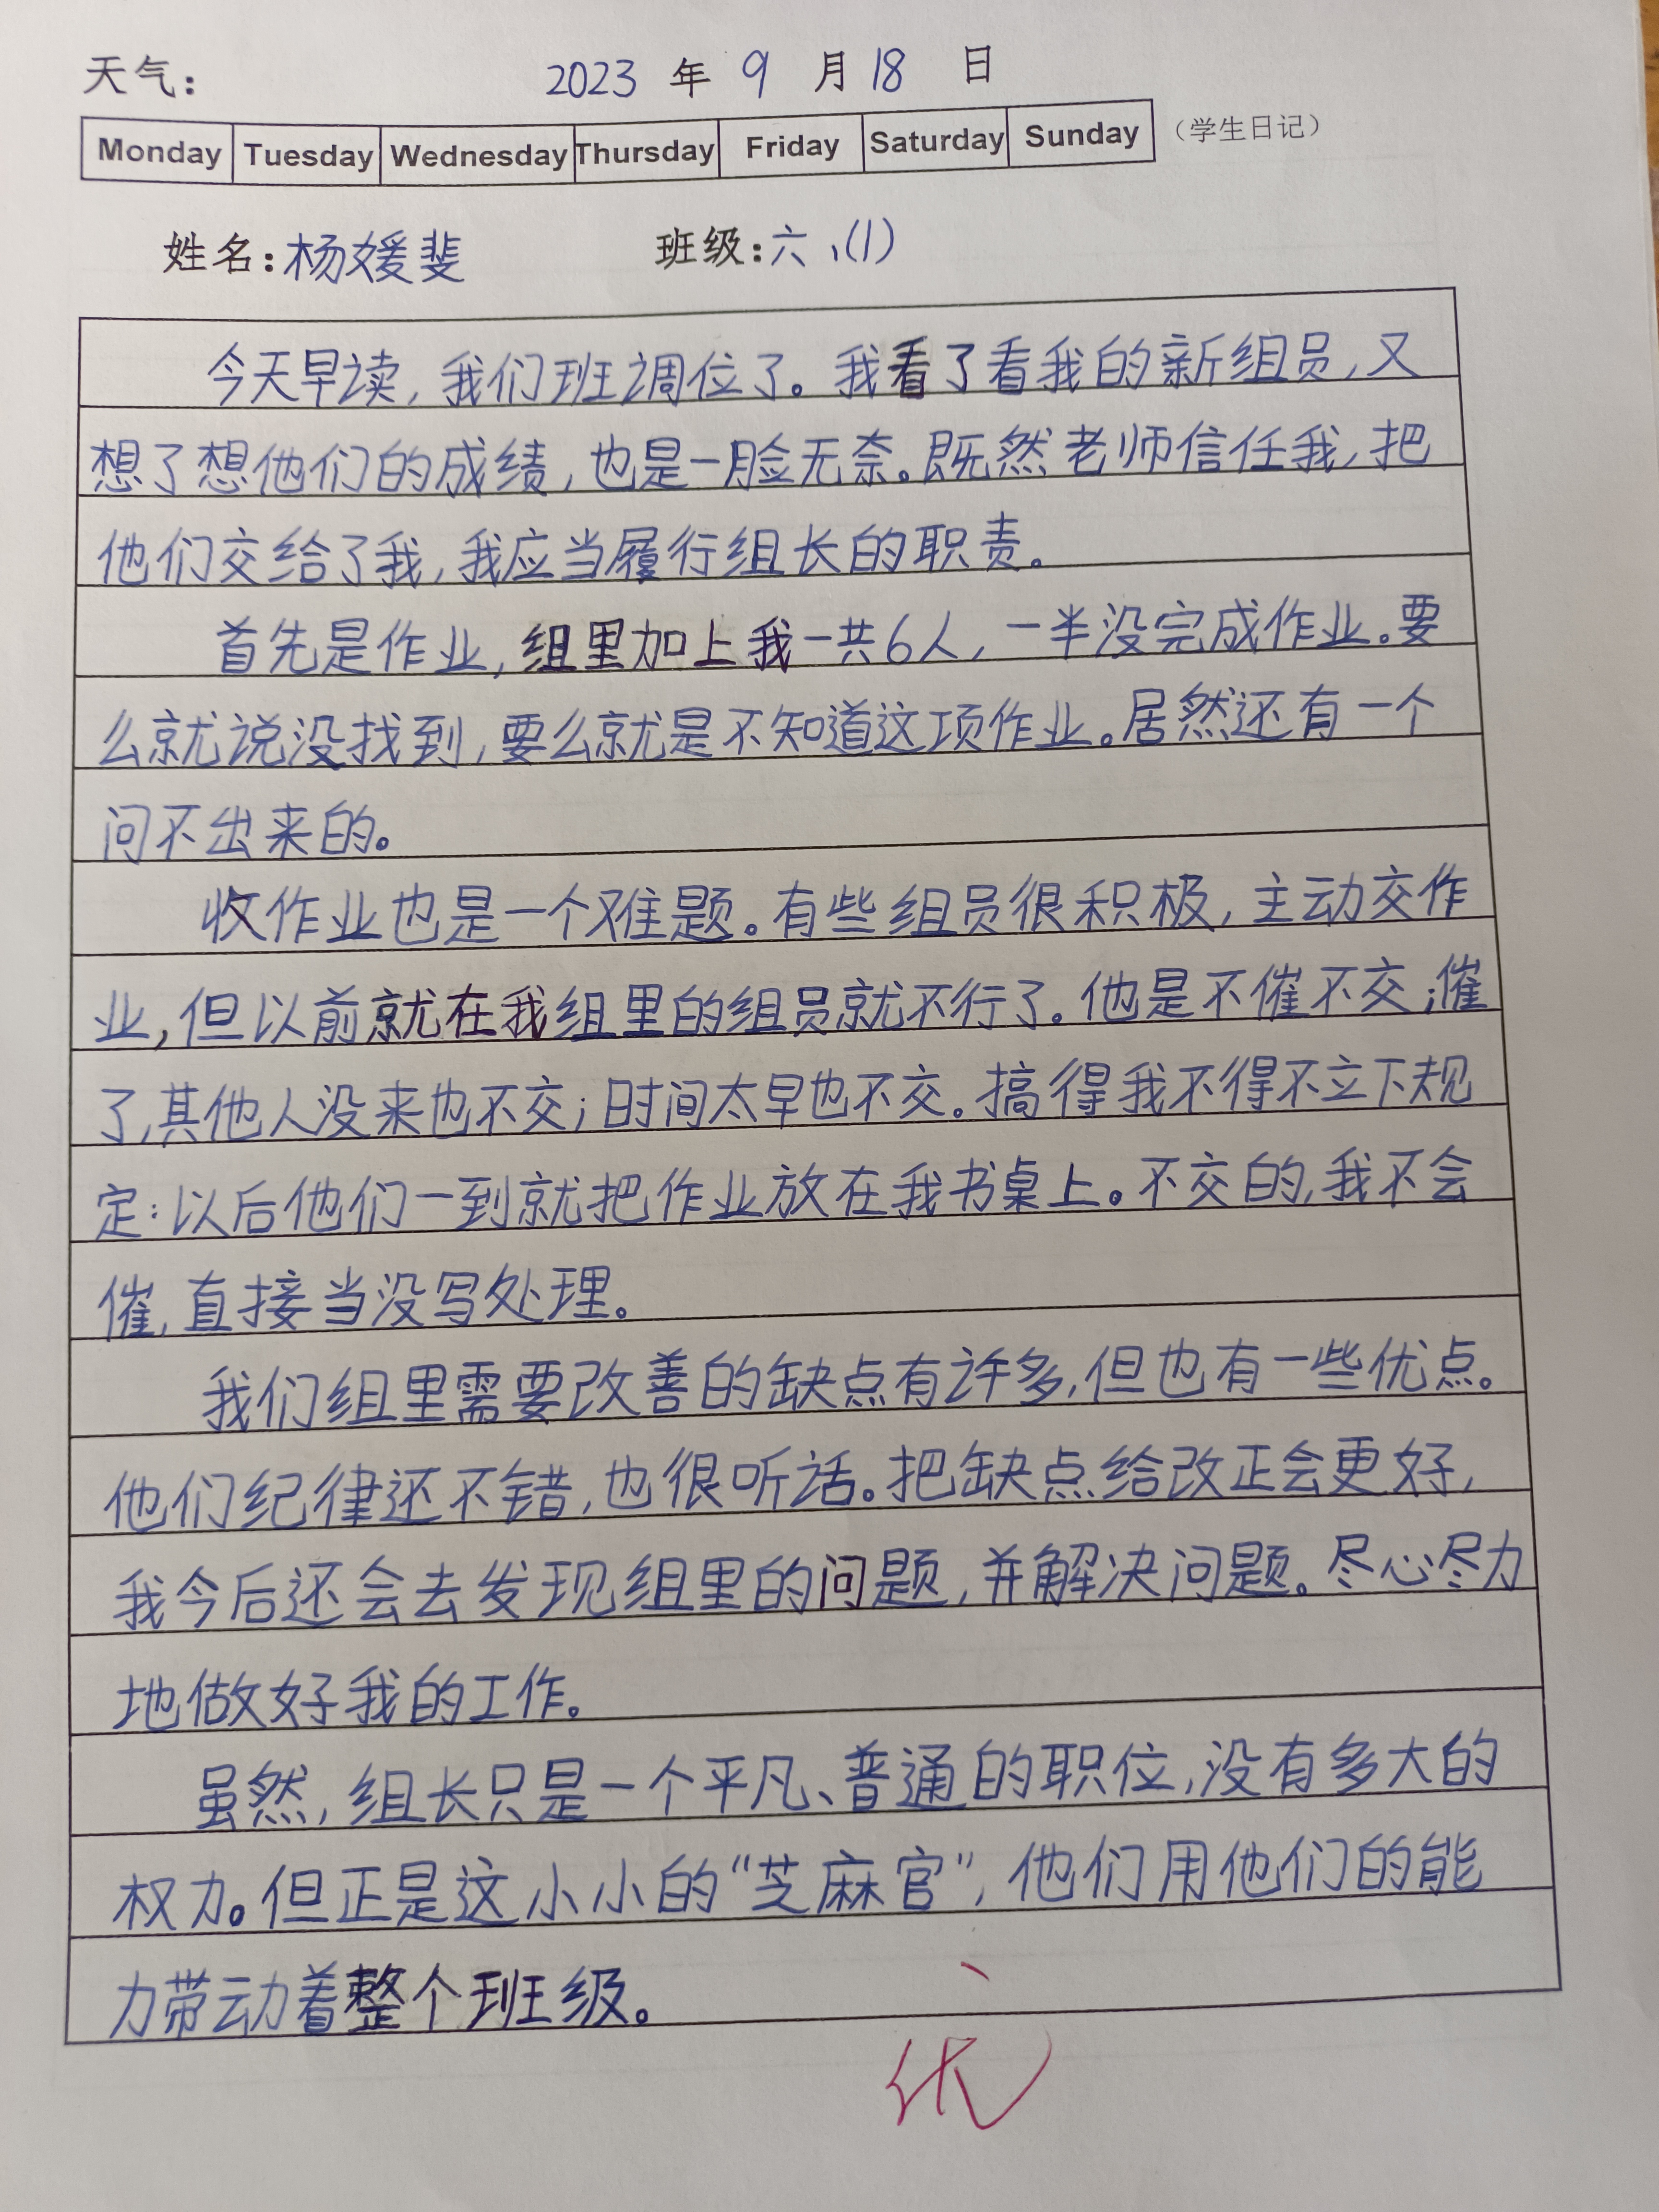 天气： 2023 年 9 月 18 日
Monday Tuesday Wednesday Thursday Friday Saturday Sunday （学生日记）
姓名：杨媛斐 班级：六、(1)
今天早读，我们班调位了。我看了看我的新组员，又
想了想他们的成绩，也是一脸无奈。既然老师信任我，把
他们交给了我，我应当履行组长的职责。
首先是作业，组里加上我一共6人，一半没完成作业。要
么就说没找到，要么就是不知道这项作业。居然还有一个
问不出来的。
收作业也是一个难题。有些组员很积极，主动交作
业，但以前就在我组里的组员就不行了。他是不催不交；催
了，其他人没来也不交；时间太早也不交。搞得我不得不立下规
定：以后他们一到就把作业放在我书桌上。不交的，我不会
催，直接当没写处理。
我们组里需要改善的缺点有许多，但也有一些优点。
他们纪律还不错，也很听话。把缺点给改正会更好，
我今后还会去发现组里的问题，并解决问题。尽心尽力
地做好我的工作。
虽然，组长只是一个平凡、普通的职位，没有多大的
权力。但正是这小小的“芝麻官”，他们用他们的能
力带动着整个班级。
优